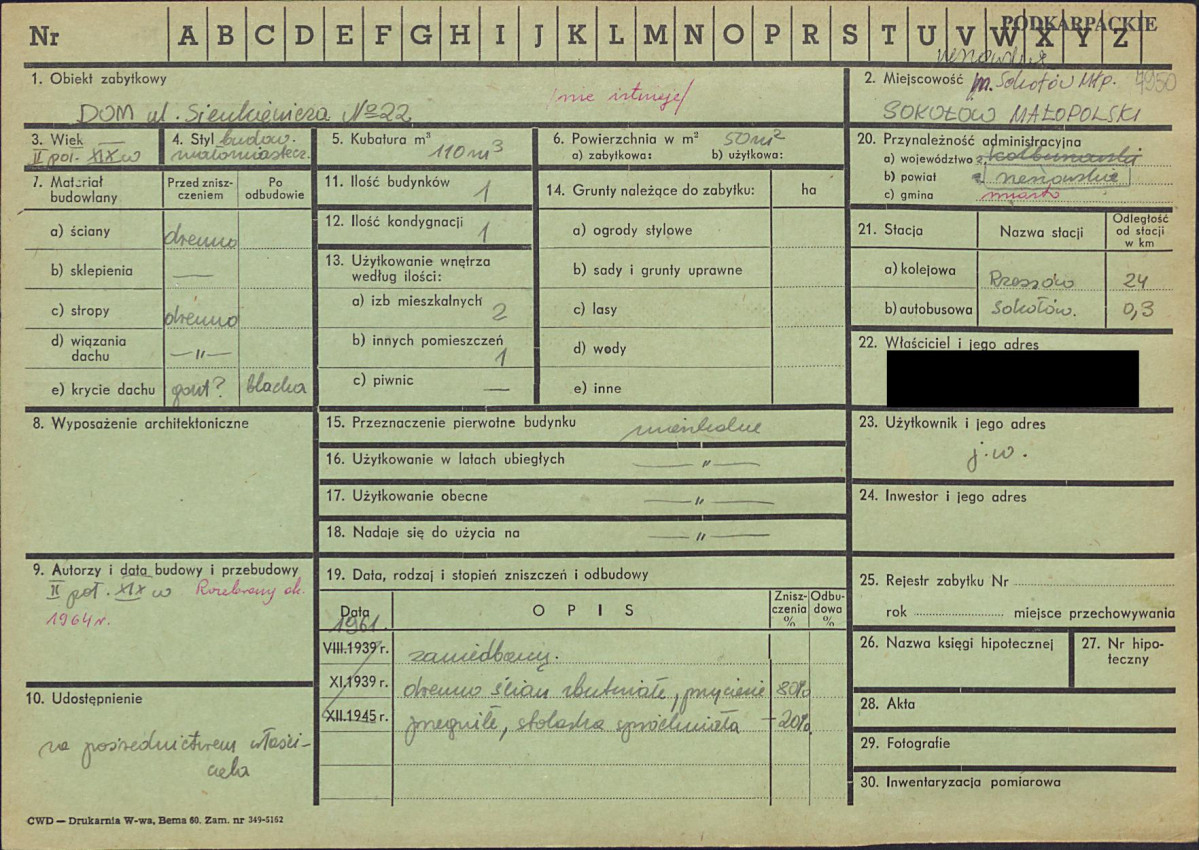 Nr A B C D E F G H I J K L M N O P R S T U V W X Y Z
PODKARPACKIE
1. Obiekt zabytkowy
/nie istnieje/
DOM ul. Sienkiewicza №22
2. Miejscowość m. Sokołów Młp. 4950
SOKOŁÓW MAŁOPOLSKI
3. Wiek
II poł. XIX w
4. Styl budow.
małomiastecz.
5. Kubatura m³
110 m³
6. Powierzchnia w m² 50 m²
a) zabytkowa: b) użytkowa:
7. Materiał budowlany
Przed zniszczeniem
Po odbudowie
a) ściany drewno
b) sklepienia —
c) stropy drewno
d) wiązania dachu —"—
e) krycie dachu gont? blacha
8. Wyposażenie architektoniczne
9. Autorzy i data budowy i przebudowy
II poł. XIX w Rozebrany ok.
1964 r.
10. Udostępnienie
za pośrednictwem właści-
ciela
11. Ilość budynków 1
12. Ilość kondygnacji 1
13. Użytkowanie wnętrza
według ilości:
a) izb mieszkalnych 2
b) innych pomieszczeń 1
c) piwnic —
14. Grunty należące do zabytku: ha
a) ogrody stylowe
b) sady i grunty uprawne
c) lasy
d) wody
e) inne
15. Przeznaczenie pierwotne budynku mieszkalne
16. Użytkowanie w latach ubiegłych —"—
17. Użytkowanie obecne —"—
18. Nadaje się do użycia na —"—
19. Data, rodzaj i stopień zniszczeń i odbudowy
Data OPIS Zniszczenia % Odbudowa %
1961.
VIII.1939 r. zaniedbany.
XI.1939 r. drewno ścian zbutwiałe, przyciesie 80%
XII.1945 r. przegniłe, stolarka spróchniała -20%
20. Przynależność administracyjna
a) województwo
b) powiat rzeszowskie
c) gmina miasto
21. Stacja Nazwa stacji Odległość od stacji w km
a) kolejowa Rzeszów 24
b) autobusowa Sokołów. 0,3
22. Właściciel i jego adres
23. Użytkownik i jego adres
j.w.
24. Inwestor i jego adres
25. Rejestr zabytku Nr
rok miejsce przechowywania
26. Nazwa księgi hipotecznej
27. Nr hipoteczny
28. Akta
29. Fotografie
30. Inwentaryzacja pomiarowa
CWD — Drukarnia W-wa, Bema 60. Zam. nr 349-5162